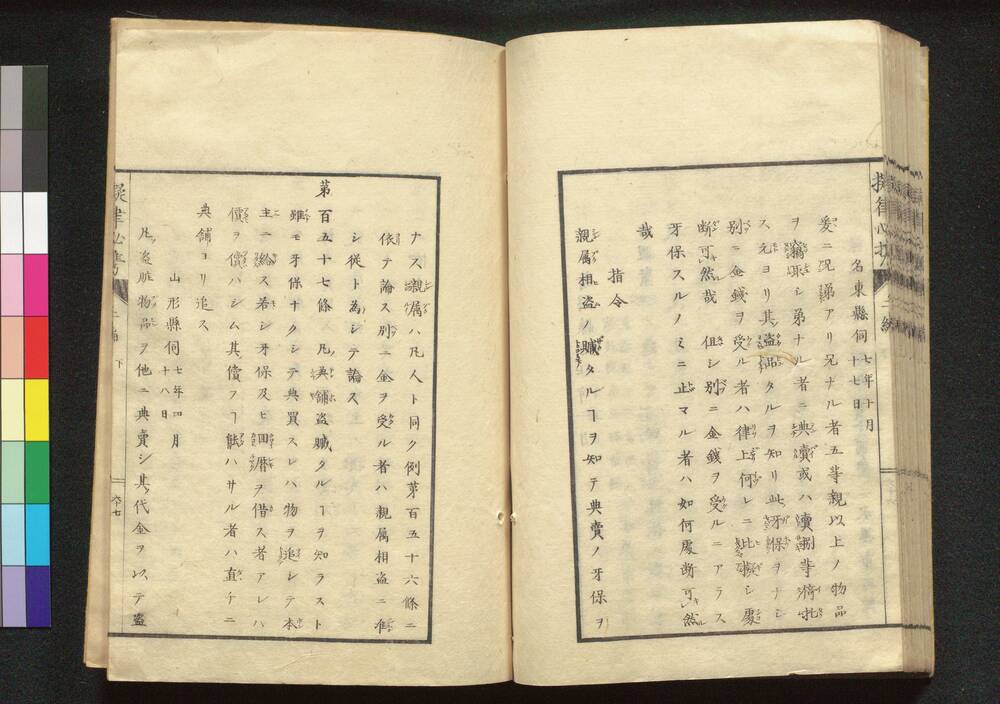 名東縣伺 七年十月十七日
爰ニ兄弟アリ兄ナル者五等親以上ノ物品
ヲ竊取シ弟ナル者ニ典濆或ハ濆捌等ヲ托
ス元ヨリ其盗品タルヲ知リ此牙保ヲナシ
別ニ金錢ヲ受ル者ハ律上何レニ比擬シ處
断可然哉 但シ別ニ金錢ヲ受ルニアラス
牙保スルノミニ止マル者ハ如何處断可然
哉
指令
親属相盗ノ贓タルヿヲ知テ典賣ノ牙保ヲ
ナス親属ハ凡人ト同ク例第百五十六條ニ
依テ論ス別ニ金ヲ受ル者ハ親属相盗ニ准
シ従ト為シテ論ス
第百五十七條 凡典鋪盗贓タルヿヲ知ラスト
雖モ牙保ナクシテ典買スレハ物ヲ追シテ本
主ニ給ス若シ牙保及ヒ田暦ヲ借ス者アレハ
價ヲ償ハシム其償フヿ能ハサル者ハ直チニ
典舗ヨリ追ス
山形縣伺 七年四月十八日
凡盗贓物品ヲ他ニ典賣シ其代金ヲ以テ盗
二編 下
六十七